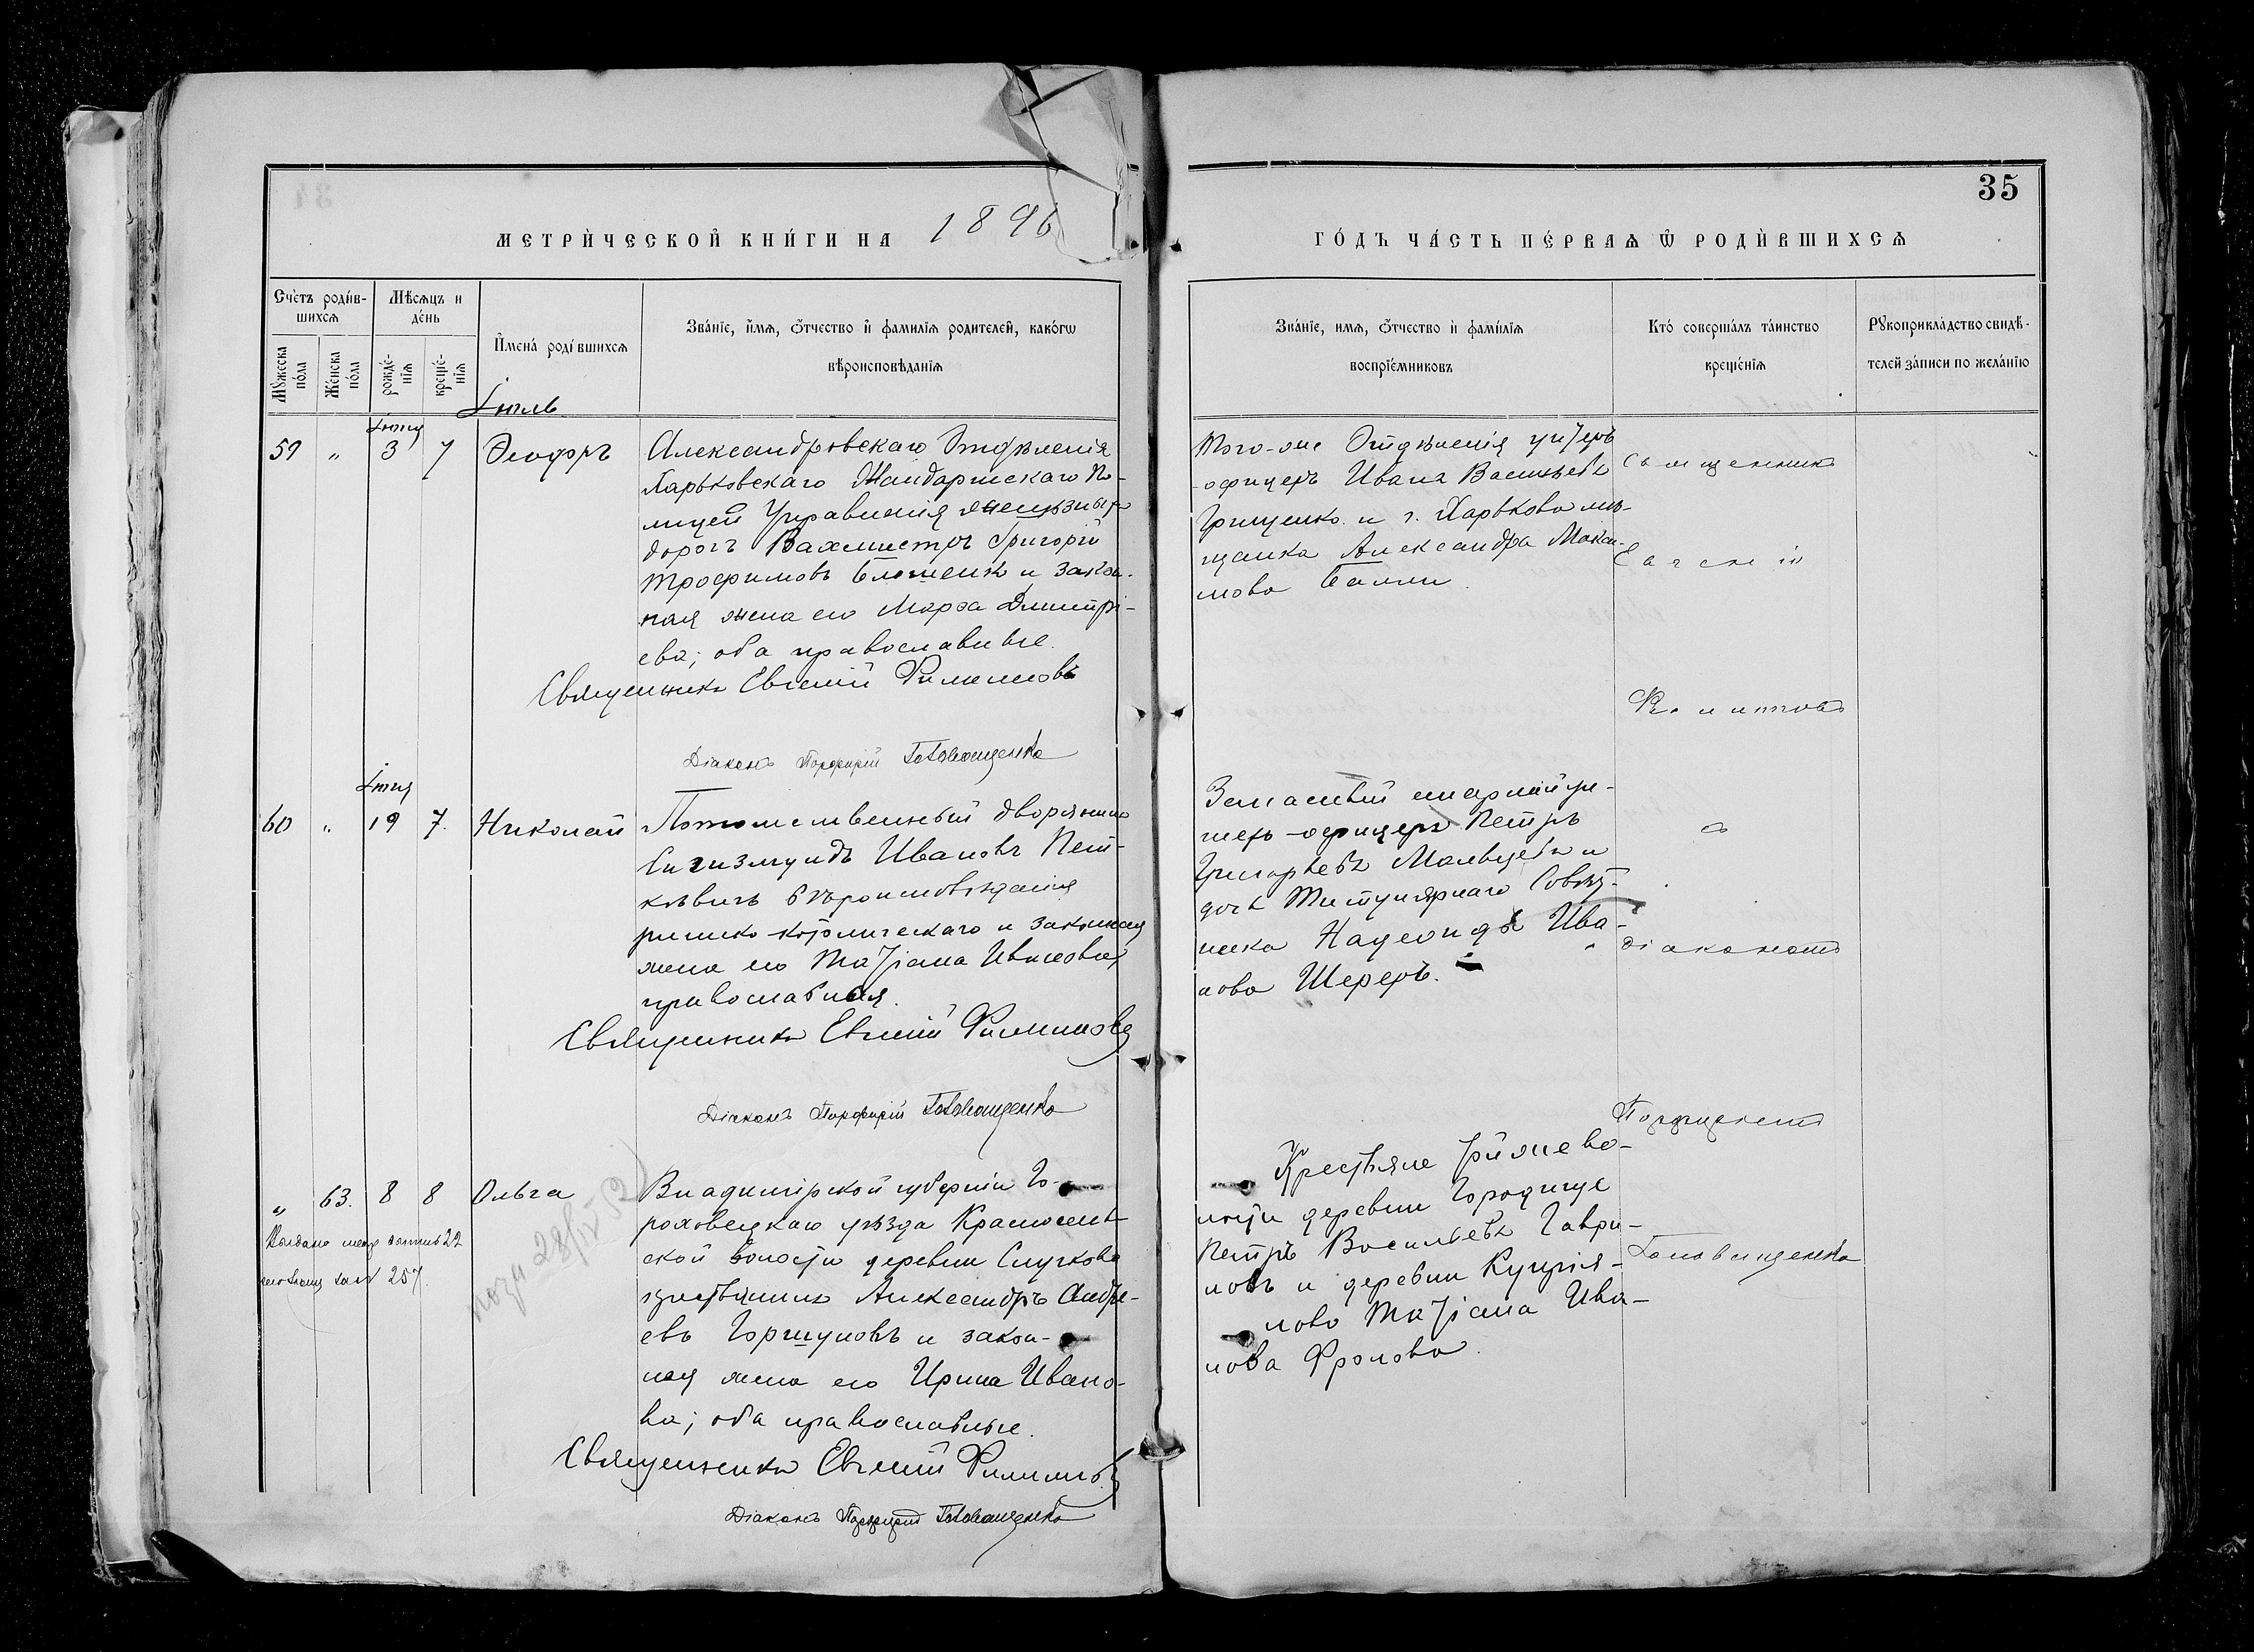 35
МЕТРИЧЕСКОЙ КНИГИ НА 1896
ГОДЪ ЧАСТЬ ПЕРВАЯ Ѡ РОДИВШИХСЯ
Счетъ родив-
шихся
Мѣсяцъ и
день
Мужеска
пола
Женска
пола
рожде-
нія
креще-
нія
Имена родившихся
Званіе, имя, отчество и фамилія родителей, какогѡ
вѣроисповѣданія
Званіе, имя, отчество и фамилія
воспріемниковъ
Кто совершалъ таинство
крещенія
Рукоприкладство свидѣ-
телей записи по желанію
Іюль
Іюля
59 " 3 7 Ѳеодоръ
Александровскаго Отдѣленія
Харьковскаго Жандармскаго По-
лицей Управленія желѣзныхъ
дорогъ Вахмистръ Григорій
Трофимовъ и закон-
ная жена его Марѳа Димитрі-
ева; оба православные.
Священникъ Евгеній Филимоновъ
Діаконъ Порфирій Головащенко
Того-же Отдѣленія унтеръ
-офицеръ Иванъ Васильевъ
Грищенко и г. Харькова мѣ-
щанка Александра Макси-
мова
Священникъ
Евгеній
Филимоновъ
Іюня
60 " 19 7. Николай
Потомственный дворянинъ
Сигизмундъ Ивановъ Пет-
кевичъ вѣроисповѣданія
римско-католическаго и законная
жена его Татіана Иванова,
православная.
Священникъ Евгеній Филимоновъ
Діаконъ Порфирій Головащенко
Запасный младшій ун-
теръ-офицеръ Петръ
Григорьевъ Мальцевъ и
дочь Титулярнаго Совѣт-
ника Надежда Ива-
нова Шереръ.
съ
діакономъ
Порфиріемъ
Головащенко
" 63. 8 8 Ольга
257.
28/IV 52
Владимірской губерніи Го-
роховецкаго уѣзда Красносель-
ской волости деревни Случкова
крестьянинъ Александръ Андре-
евъ Горшуновъ и закон-
ная жена его Ирина Ивано-
ва; оба православные.
Священникъ Евгеній Филимоновъ
Діаконъ Порфирій Головащенко
Крестьяне
деревни Городище
Петръ Васильевъ Гаври-
ловъ и деревни Купрія-
нова Татіана Ива-
нова Фролова.